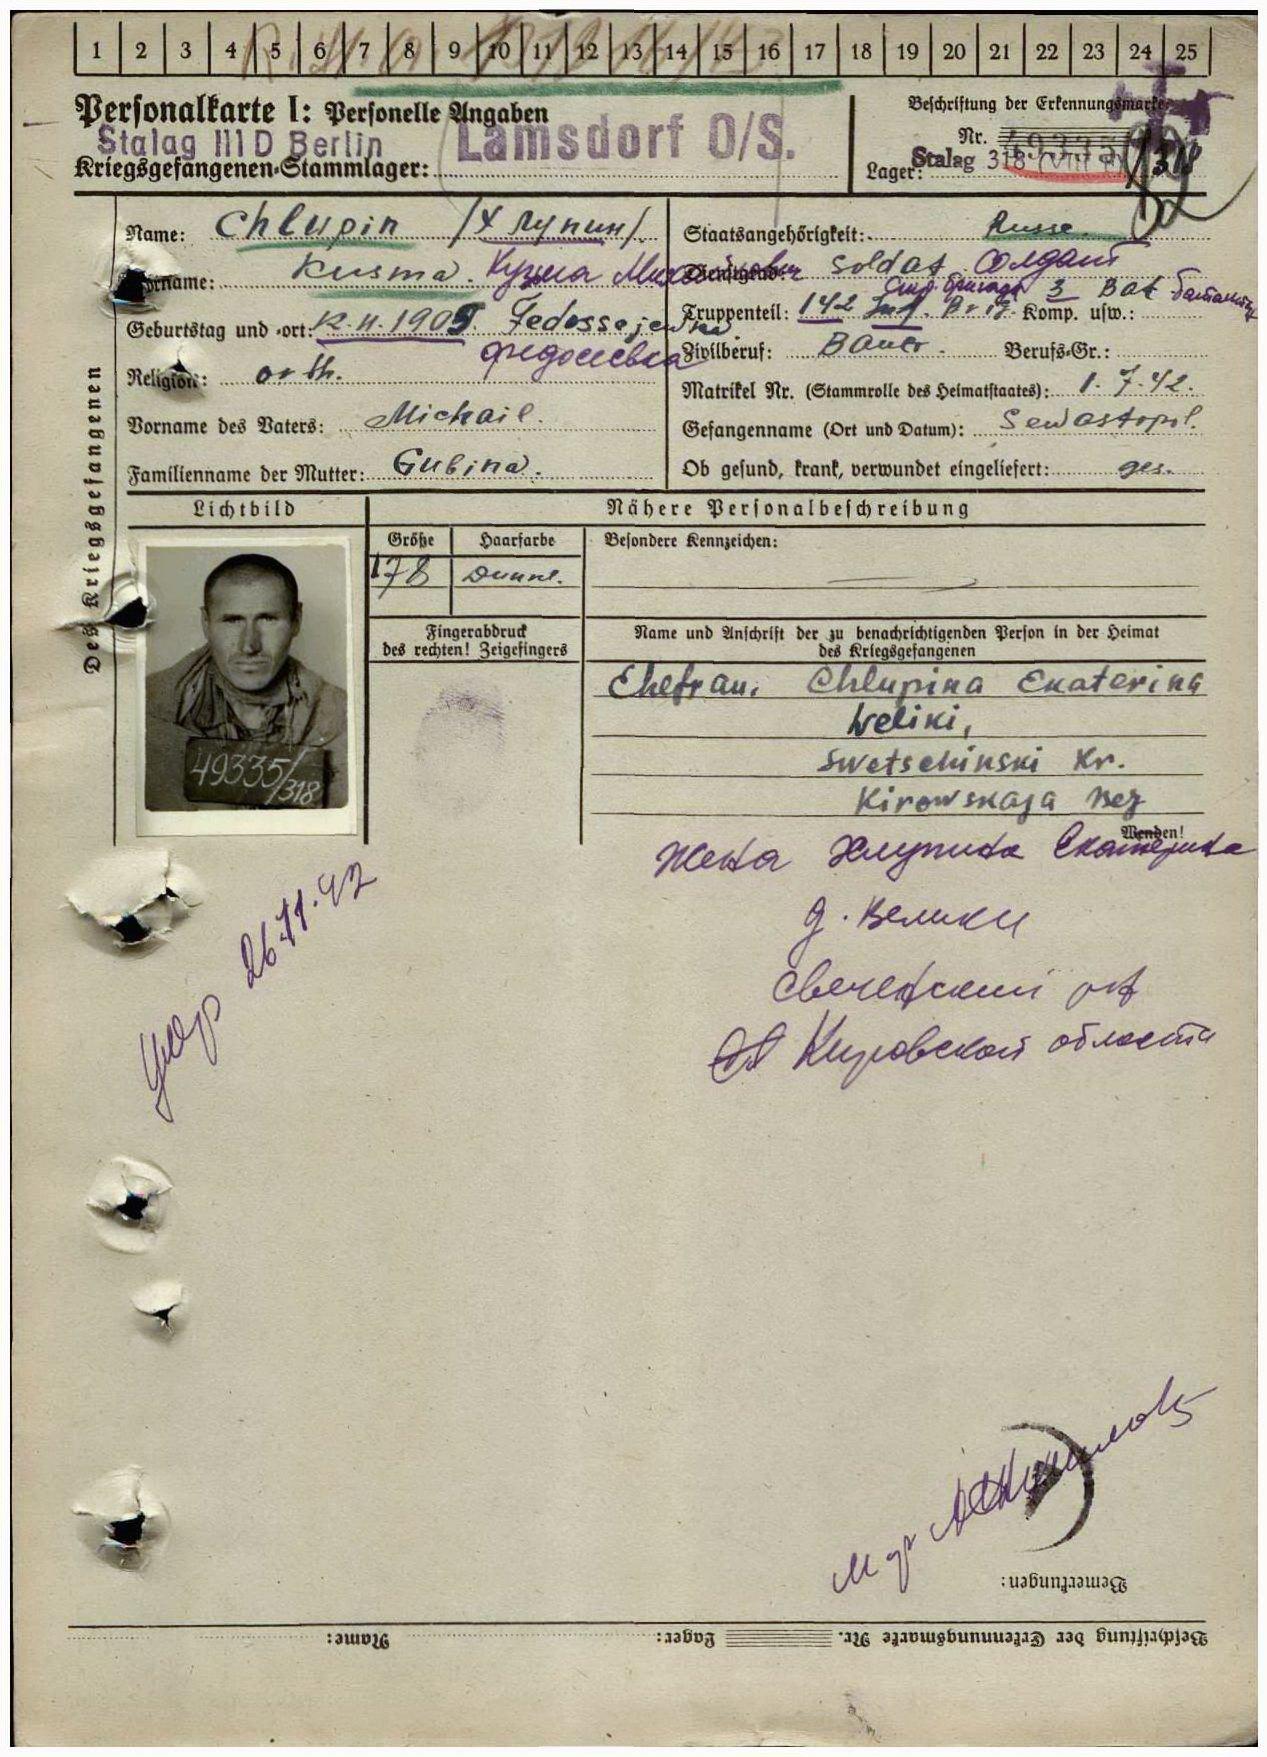 1 2 3 4 5 6 7 8 9 10 11 12 13 14 15 16 17 18 19 20 21 22 23 24 25
Personalkarte I: Personelle Angaben
Beschriftung der Erkennungsmarke
Stalag III D Berlin
Lamsdorf O/S.
Nr. 49335
Kriegsgefangenen-Stammlager:
Lager: Stalag 318 (VIII F) 318
Des Kriegsgefangenen
Name: Chlupin /Хлупин/
Staatsangehörigkeit: Russe.
Vorname: Kusma. Кузьма Михайлович
Dienstgrad: Soldat Солдат
Geburtstag und -ort: 12.11.1905 Fedossejewka
Федосеевка
Truppenteil: 142 Inf. Brig. Komp. usw.: 3 Bat
Zivilberuf: Bauer. Berufs-Gr.:
Religion: orth.
Matrikel Nr. (Stammrolle des Heimatstaates): 1.7.42.
Vorname des Vaters: Michail.
Gefangenname (Ort und Datum): Sewastopol.
Familienname der Mutter: Gubina.
Ob gesund, krank, verwundet eingeliefert: ges.
Lichtbild
Nähere Personalbeschreibung
Größe
Haarfarbe
Besondere Kennzeichen:
178
Dunkl.
49335/318
Fingerabdruck
des rechten! Zeigefingers
Name und Anschrift der zu benachrichtigenden Person in der Heimat
des Kriegsgefangenen
Ehefrau. Chlupina Ekaterina
Weliki,
Swetschinski Kr.
Kirowskaja Bez
Wenden!
Жена Хлупина Екатерина
д. Велики
Свечевский
Кировской области
умер 26.11.42
Bemerkungen:
Beschriftung der Erkennungsmarke Nr. Lager: Name: